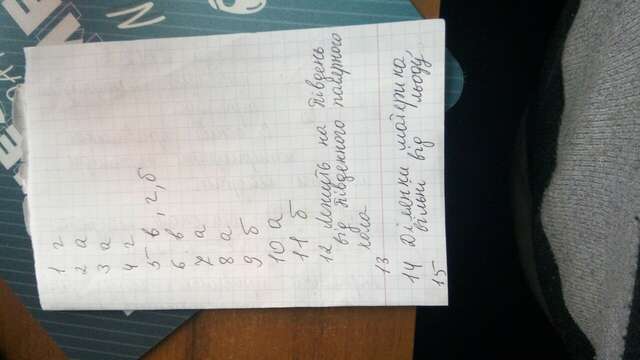 1 г
2 а
3 а
4 г
5 в, г, б
6 в
7 а
8 а
9 б
10 а
11 б
12 Лежить на південь
від Південного полярного
кола
13
14 Ділянки материка
вільні від льоду
15